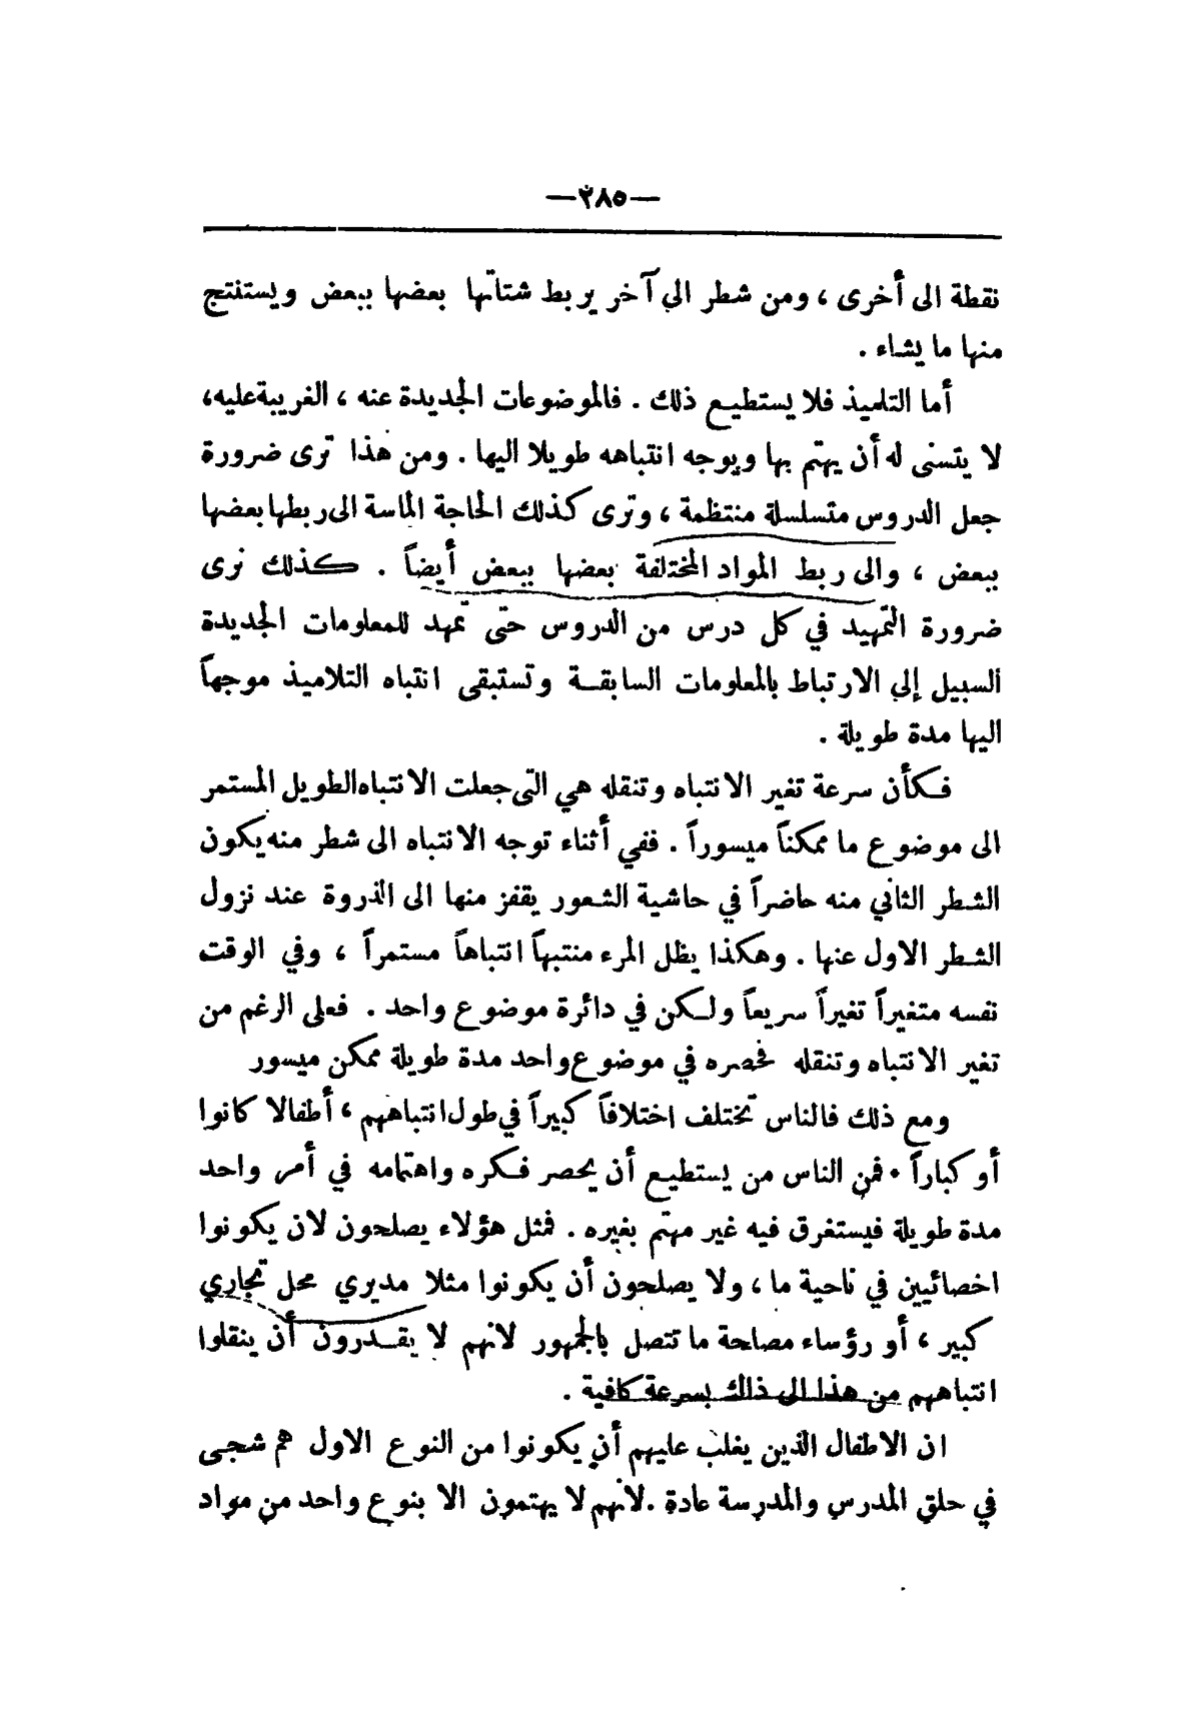 —٢٨٥—
نقطة الى أخرى ، ومن شطر الى آخر يربط شتاتها بعضها ببعض ويستنتج
منها ما يشاء .
أما التلميذ فلا يستطيع ذلك . فالموضوعات الجديدة عنه ، الغريبة عليه،
لا يتسنى له أن يهتم بها ويوجه انتباهه طويلا اليها . ومن هذا ترى ضرورة
جعل الدروس متسلسلة منتظمة ، وترى كذلك الحاجة الماسة الى ربطها بعضها
ببعض ، والى ربط المواد المختلفة بعضها ببعض أيضاً . كذلك نرى
ضرورة التمهيد في كل درس من الدروس حتى تمهد للمعلومات الجديدة
السبيل إلى الارتباط بالمعلومات السابقة وتستبقى انتباه التلاميذ موجهاً
اليها مدة طويلة .
فكأن سرعة تغير الانتباه وتنقله هي التى جعلت الانتباه الطويل المستمر
الى موضوع ما ممكناً ميسوراً . ففي أثناء توجه الانتباه الى شطر منه يكون
الشطر الثاني منه حاضراً في حاشية الشعور يقفز منها الى الذروة عند نزول
الشطر الاول عنها . وهكذا يظل المرء منتبهاً انتباهاً مستمراً ، وفي الوقت
نفسه متغيراً تغيراً سريعاً ولكن في دائرة موضوع واحد . فعلى الرغم من
تغير الانتباه وتنقله فحصره في موضوع واحد مدة طويلة ممكن ميسور
ومع ذلك فالناس تختلف اختلافاً كبيراً في طول انتباههم ، أطفالا كانوا
أو كباراً . فمن الناس من يستطيع أن يحصر فكره واهتمامه في أمر واحد
مدة طويلة فيستغرق فيه غير مهتم بغيره . فمثل هؤلاء يصلحون لان يكونوا
اخصائيين في ناحية ما ، ولا يصلحون أن يكونوا مثلا مديري محل تجاري
كبير ، أو رؤساء مصلحة ما تتصل بالجمهور لانهم لا يقدرون أن ينقلوا
انتباههم من هذا الى ذاك بسرعة كافية .
ان الاطفال الذين يغلب عليهم أن يكونوا من النوع الاول هم شجى
في حلق المدرس والمدرسة عادة . لانهم لا يهتمون الا بنوع واحد من مواد